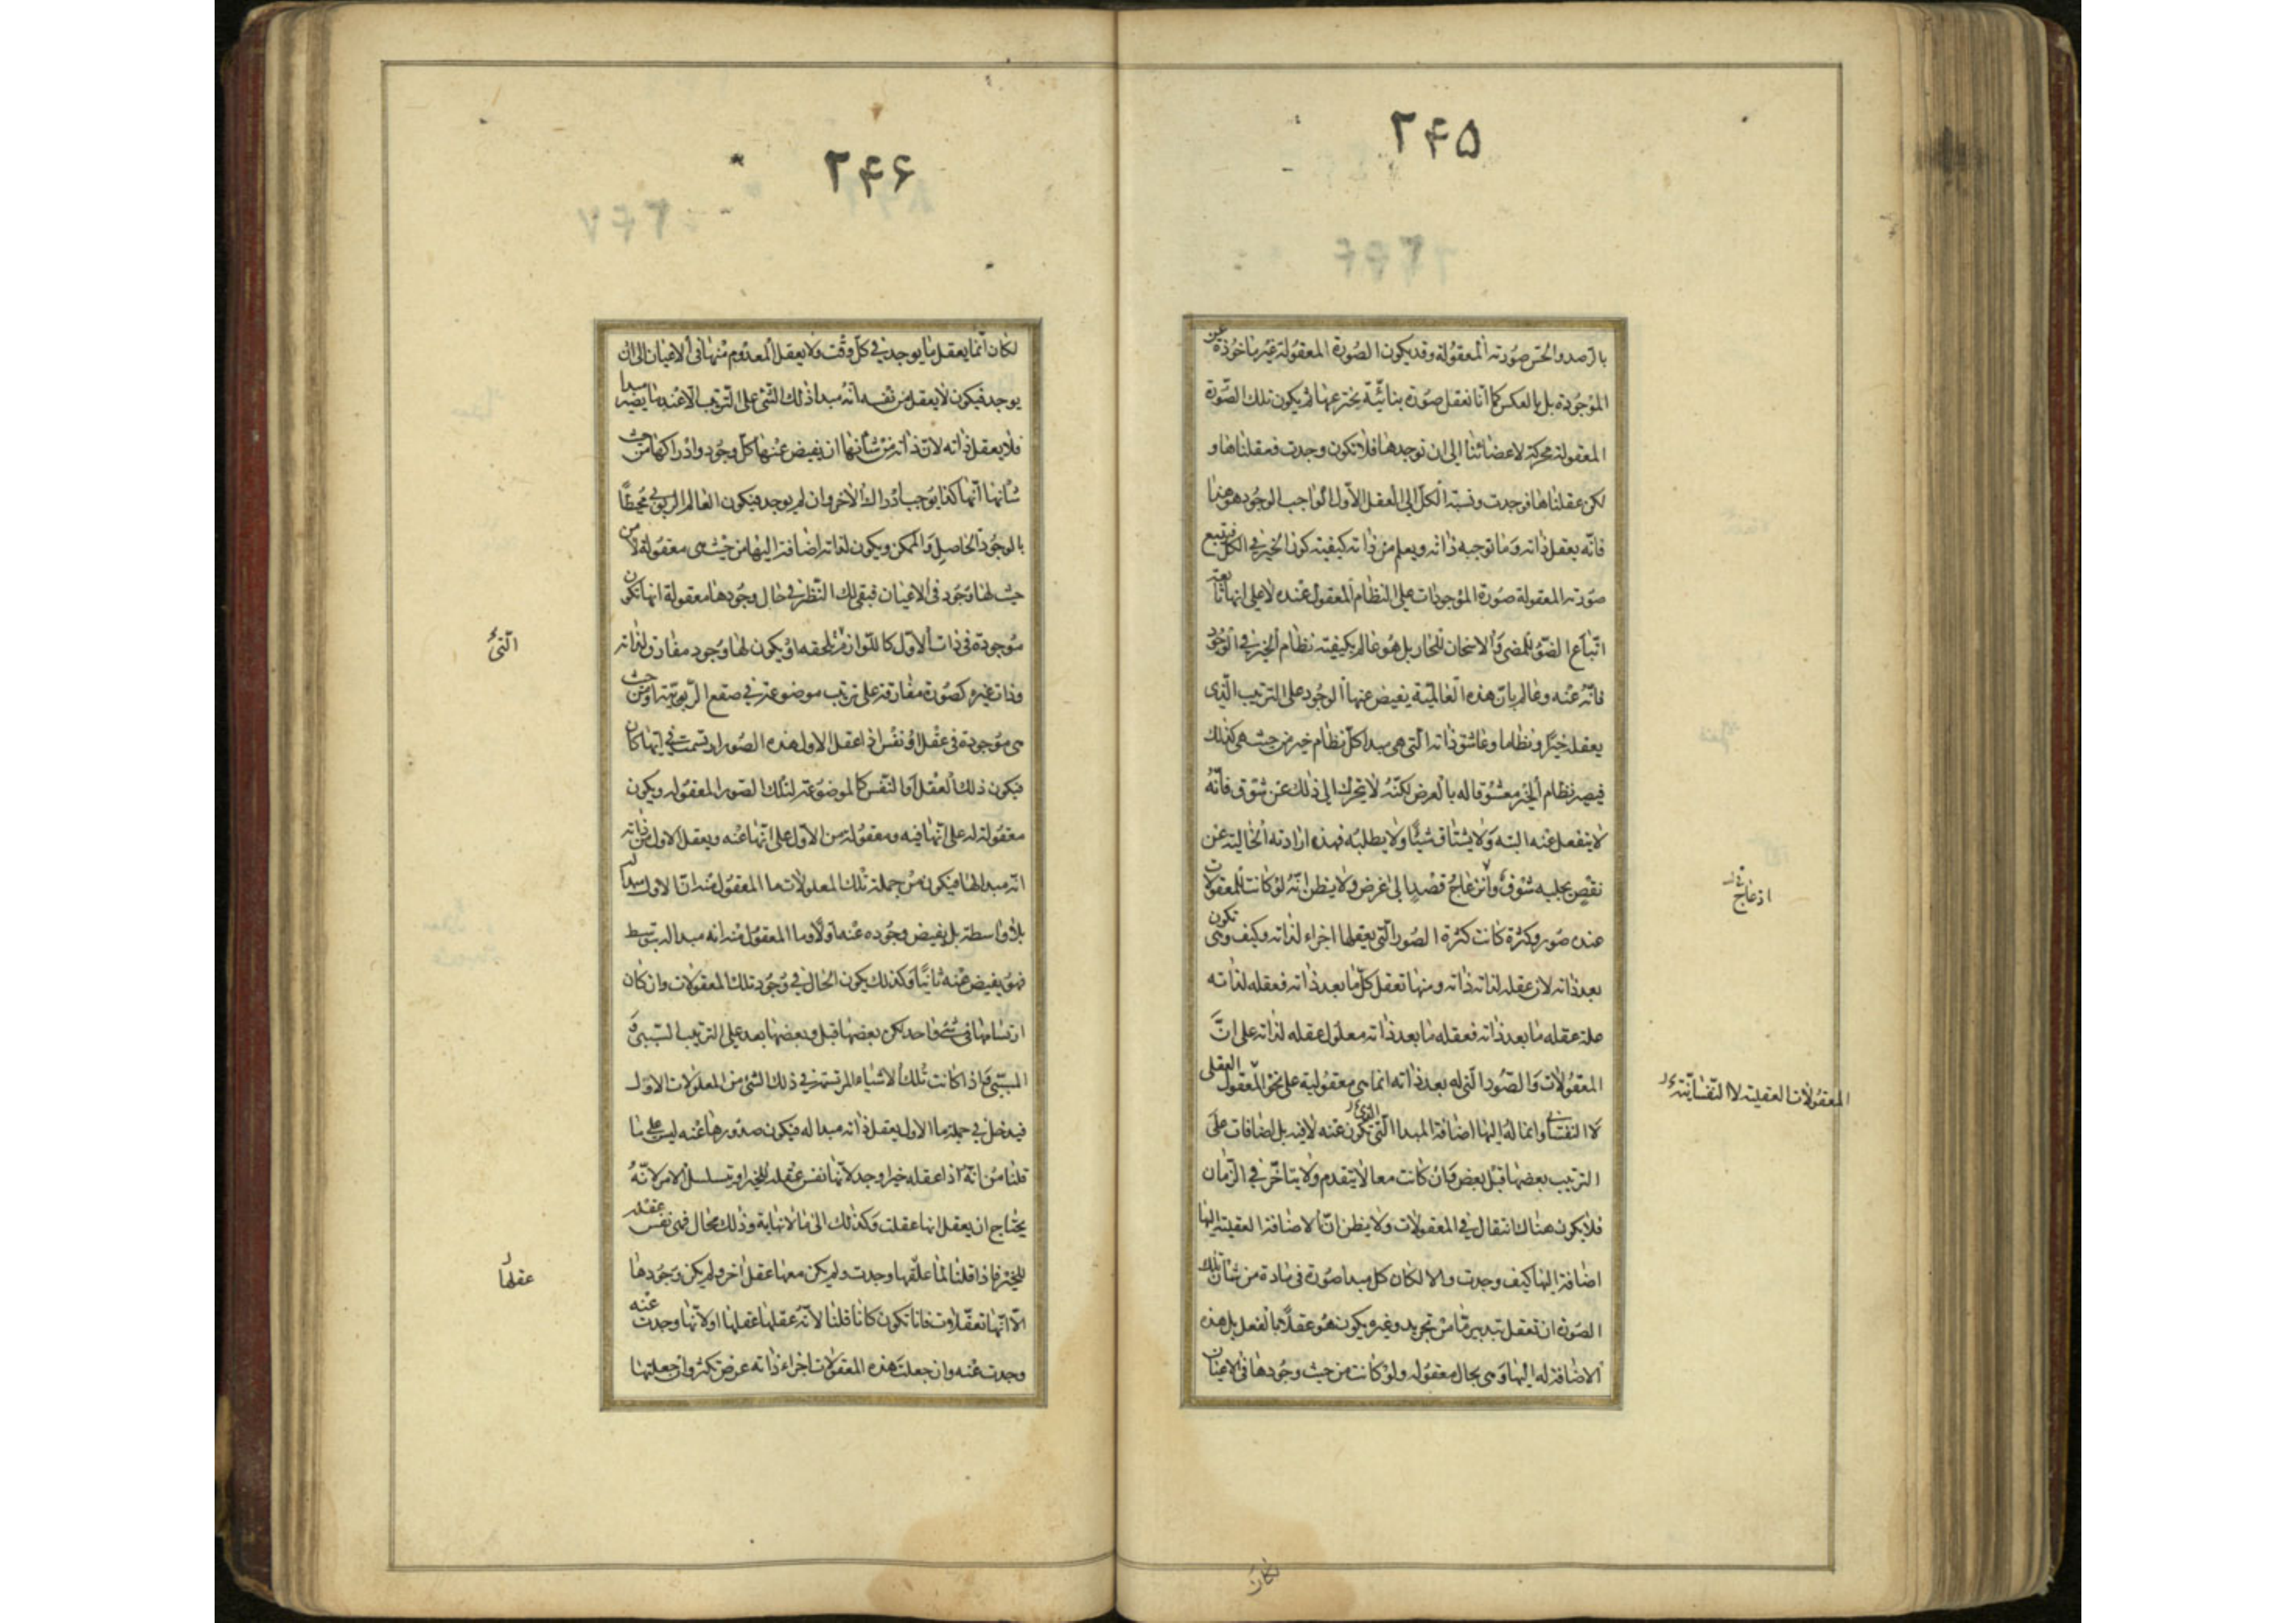 ۲۴۵
بالرصد والحس صورته المعقولة وقد يكون الصورة المعقولة غير ماخوذة عن
الموجودة بل بالعكس كما انا نعقل صورة بنائية نخترعها ثم يكون تلك الصورة
المعقولة محركة لاعضائنا الى ان نوجدها فلا تكون وجدت فعقلناها و
لكن عقلناها فوجدت ونسبة الكل الى العقل الاول الواجب الوجود هو هذا
فانه يعقل ذاته وما توجبه ذاته ويعلم من ذاته كيفية كون الخير في الكل فيتبع
صورته المعقولة صورة الموجودات على النظام المعقول عنده لا على انها تابعة
اتباع الضوء للمضئ والاسخان للحار بل هو عالم بكيفية نظام الخير في الوجود
فانه عنه وعالم بان هذه العالمية يفيض عنها الوجود على الترتيب الذي
يعقله خيرا ونظاما وعاشق ذاته التي هي مبدا كل نظام خير من حيث هي كذلك
فيصير نظام الخير معشوقا له بالعرض لكنه لا يتحرك الى ذلك عن شوق فانه
لا ينفعل عنه البته ولا يشتاق شيئا ولا يطلبه فهذه ارادته الخالية عن
نقص يجلبه شوق وانزعاج قصد الى غرض ولا يظن انه لو كانت للمعقولات
عنده صور وكثرة كانت كثرة الصور التي يعقلها اجزاء لذاته وكيف وهي تكون
بعد ذاته لان عقله لذاته ذاته ومنها تعقل كل ما بعد ذاته فعقله لذاته
علة عقله ما بعد ذاته فعقله ما بعد ذاته معلول عقله لذاته على ان
المعقولات والصور التي له بعد ذاته انما هي معقولية على نحو المعقول العقلي
لا النفساني وانما له اليها اضافة المبدا الذي التي تكون عنه لا فيه بل اضافات على
الترتيب بعضها قبل بعض وان كانت معا لا يتقدم ولا يتاخر في الزمان
فلا يكون هناك انتقال في المعقولات ولا يظن ان الاضافة العقلية اليها
اضافة اليها كيف وجدت والا لكان كل مبدا صورة في مادة من شان تلك
الصورة ان تعقل تبدبير ما من تجريد وغيره يكون هو عقلا بالفعل بل هذه
الاضافة له اليها وهي بحال معقوله ولو كانت من حيث وجودها في الاعيان
المعقولات العقلية لا النفسانية
لكان
۲۴۶
لكان انما يعقل ما يوجد في كل وقت ولا يعقل المعدوم منها في الاعيان الى ان
يوجد فيكون لا يعقل من نفسه انه مبدا ذلك الشئ على الترتيب الا عند ما يصير مبدا
فلا يعقل ذاته لان ذاته من شانها ان يفيض عنها كل وجود وادراكها من حيث
شانها انها كذا يوجب ادراك الاخر وان لم يوجد فيكون العالم الربوبي محيطا
بالوجود الحاصل والممكن ويكون لذاته اضافة اليها من حيث هي معقولة لا من
حيث لها وجود في الاعيان فبقي لك النظر في حال وجودها معقولة انها تكون
موجودة في ذات الاول كاللوازم تلحقه او يكون لها وجود مفارق لذاته
وذات غيره كصورة مفارقة على ترتيب موضوعة في صقع الربوبية او من حيث
هي موجودة في عقل او نفس اذا عقل الاول هذه الصور ارتسمت في ايها كان
فيكون ذلك العقل او النفس كالموضوعة لتلك الصور المعقوله ويكون
معقولة له على انها فيه ومعقولة من الاول على انها عنه ويعقل الاول من ذاته
انه مبدا لها فيكون من جملة تلك المعلولات ما المعقول منه ان الاول مبدا له
بلا واسطة بل يفيض وجوده عنه اولا وما المعقول منه انه مبدا له بتوسط
فهو يفيض عنه ثانيا وكذلك يكون الحال في وجود تلك المعقولات وان كان
ارتسامها في شئ واحد لكن بعضها قبل وبعضها بعد على الترتيب السببي و
المسببي فاذا كانت تلك الاشياء المرتسمة في ذلك الشئ من المعلولات الاول
فيدخل في جملة ما الاول يعقل ذاته مبدا له فيكون صدورها عنه ليس على ما
قلنا من انه اذا عقله خيرا وجد لانها نفس عقله للخير او يتسلسل الامر لانه
يحتاج ان يعقل انها عقلت وكذلك الى ما لا نهاية وذلك محال فهي نفس عقله
للخير فاذا قلنا لما عقلها وجدت ولم يكن معها عقل اخر ولم يكن وجودها
الا انها تعقلات فانا تكون كانا قلنا لانه عقلها عقلها او لانها وجدت عنه
وجدت عنه وان جعلت هذه المعقولات اجزاء ذاته عرض تكثر وان جعلتها
عقلها